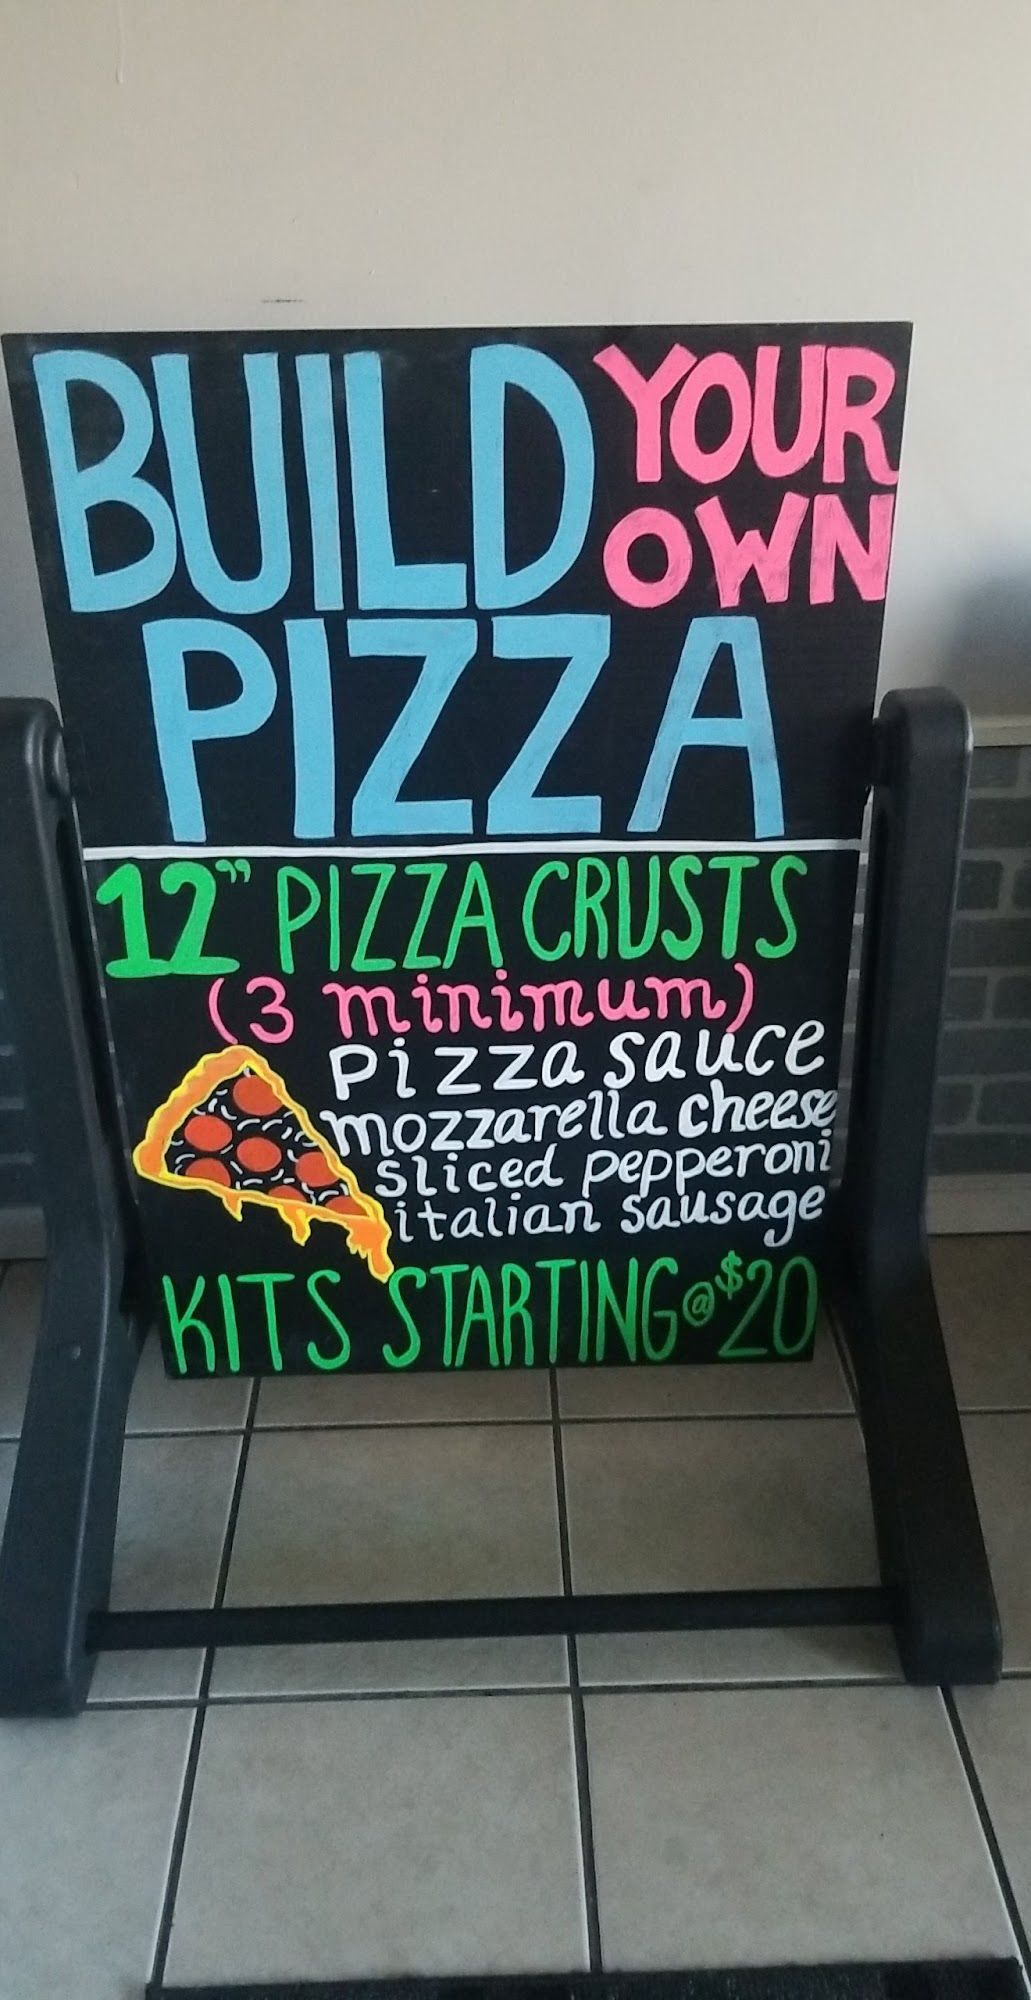 BUILD YOUR OWN
PIZZA
12" PIZZA CRUSTS
(3 minimum)
pizza sauce
mozzarella cheese
sliced pepperoni
italian sausage
KITS STARTING @ $20